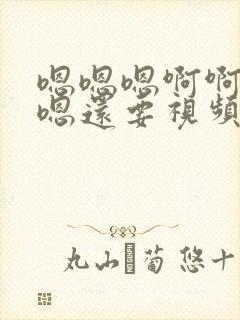 嗯嗯嗯啊啊
嗯還要視頻
丸山 菊 悠十